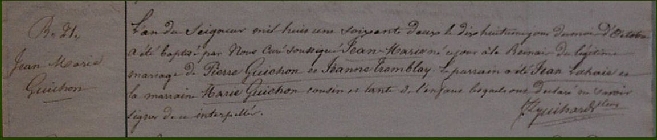 B. 31,
Jean Marie
Guichon
L'an du Seigneur mil huit cent soixante douze le dix huitième jour du mois d'Octobre
a été baptisé par Nous Curé soussigné Jean-Marie né ce jour à la Remar du légitime
mariage de Pierre Guichon et Jeanne Tremblay. Le parrain a été Jean Lahaie et
la marraine Marie Guichon cousin et tante de l'enfant lesquels ont déclaré ne savoir
signer de ce interpellés.